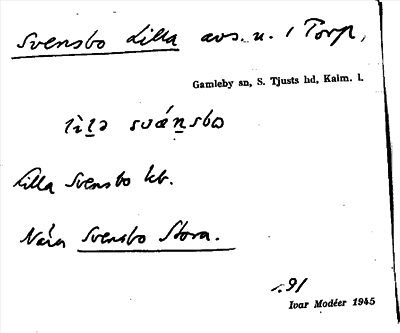 Svensbo Lilla avs. u. 1 Torp,
Gamleby sn, S. Tjusts hd, Kalm. l.
lìlə svánsbo
Lilla Svensbo kb.
Nära Svensbo Stora.
91
Ivar Modéer 1945